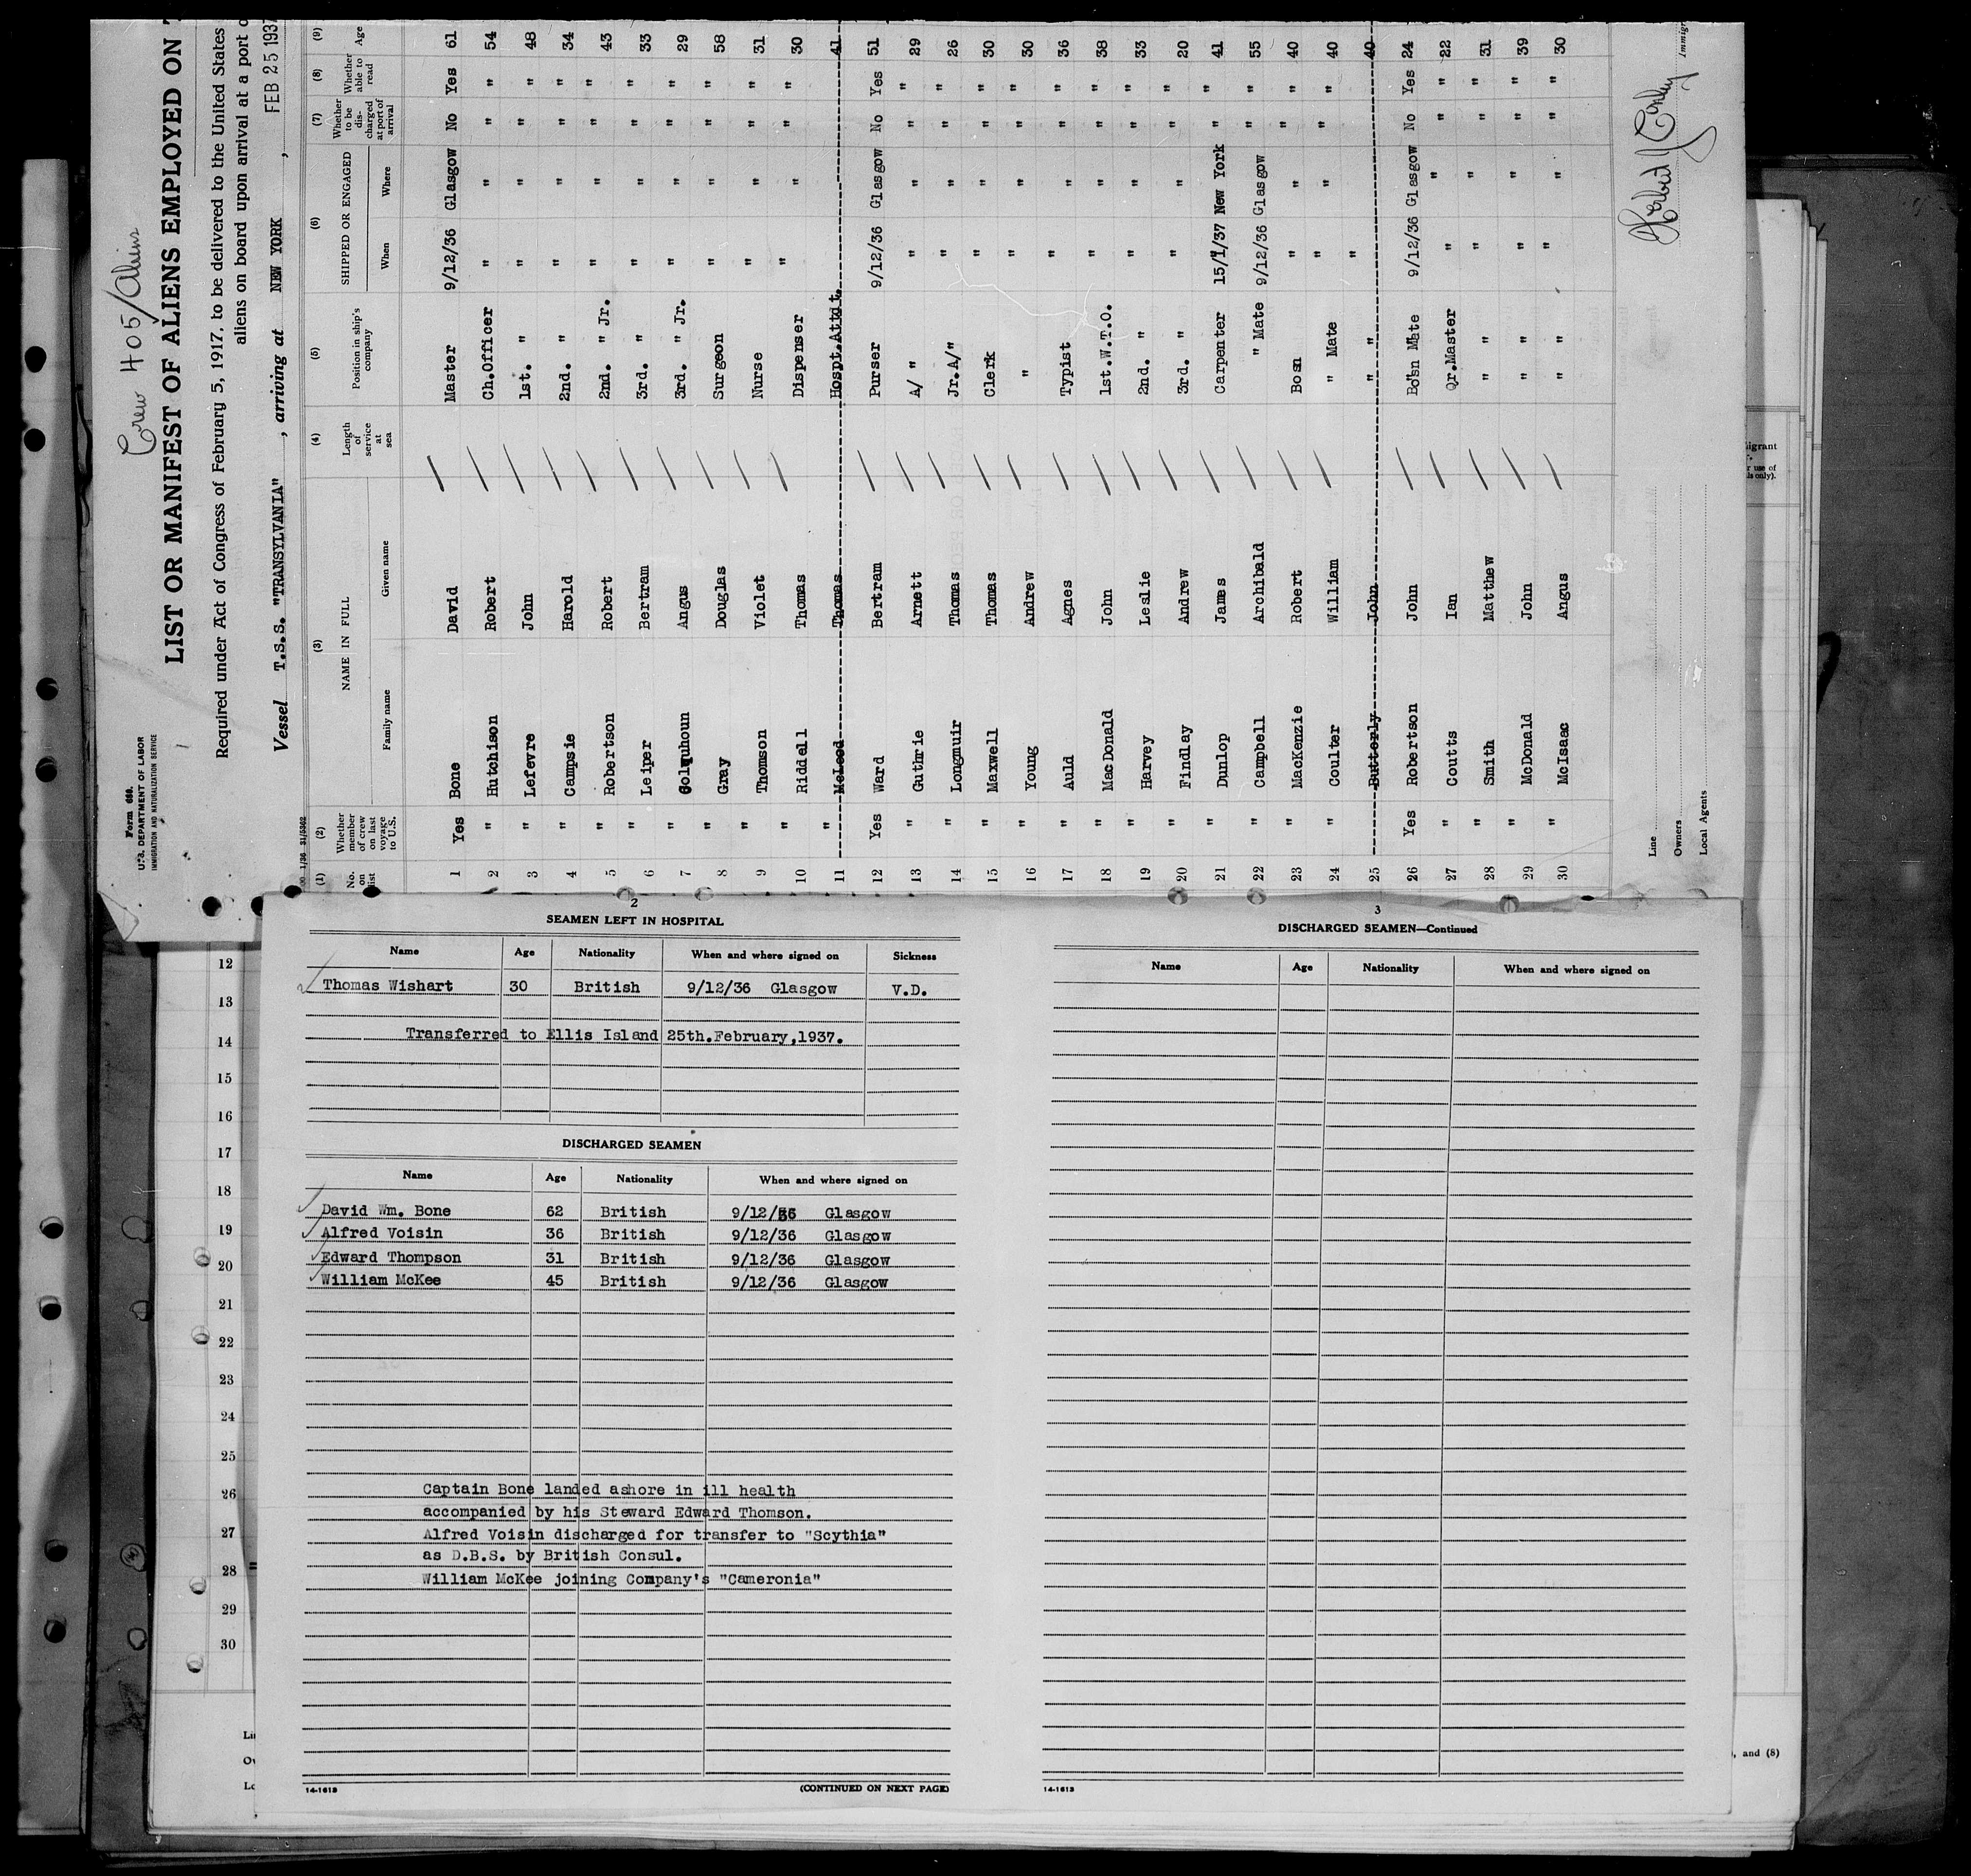 Crew 405/Aliens
Form 680.
U.S. DEPARTMENT OF LABOR
IMMIGRATION AND NATURALIZATION SERVICE
LIST OR MANIFEST OF ALIENS EMPLOYED ON
Required under Act of Congress of February 5, 1917, to be delivered to the United States
aliens on board upon arrival at a port o
Vessel T.S.S. "TRANSYLVANIA" , arriving at NEW YORK , FEB 25 1937
(1) (2) (3) (4) (5) (6) (7) (8) (9)
No. on list Whether member of crew on last voyage to U.S. NAME IN FULL Length of service at sea Position in ship's company SHIPPED OR ENGAGED Whether to be discharged at port of arrival Whether able to read Age
Family name Given name When Where
1 Yes Bone David Master 9/12/36 Glasgow No Yes 61
2 " Hutchison Robert Ch.Officer " " " " 54
3 " Lefevre John 1st. " " " " " 48
4 " Campsie Harold 2nd. " " " " " 34
5 " Robertson Robert 2nd. " Jr. " " " " 43
6 " Leiper Bertram 3rd. " " " " " 33
7 " Colquhoun Angus 3rd. " Jr. " " " " 29
8 " Gray Douglas Surgeon " " " " 58
9 " Thomson Violet Nurse " " " " 31
10 " Riddell Thomas Dispenser " " " " 30
11 " McLeod Thomas Hospt.Attdt. 41
12 Yes Ward Bertram Purser 9/12/36 Glasgow No Yes 51
13 " Guthrie Arnett A/ " " " " " 29
14 " Longmuir Thomas Jr.A/" " " " " 26
15 " Maxwell Thomas Clerk " " " " 30
16 " Young Andrew " " " " " 30
17 " Auld Agnes Typist " " " " 36
18 " MacDonald John 1st.W.T.O. " " " " 38
19 " Harvey Leslie 2nd. " " " " " 33
20 " Findlay Andrew 3rd. " " " " " 20
21 " Dunlop James Carpenter 15/1/37 New York " " 41
22 " Campbell Archibald " Mate 9/12/36 Glasgow " " 55
23 " MacKenzie Robert Bosn " " " " 40
24 " Coulter William " Mate " " " " 40
25 Butterly John " " " 40
26 Yes Robertson John Bo'sn Mate 9/12/36 Glasgow No Yes 24
27 " Coutts Ian Qr.Master " " " " 22
28 " Smith Matthew " " " " " 31
29 " McDonald John " " " " " 39
30 " McIsaac Angus " " " " " 30
Line
Owners
Local Agents
Immigr
igrant
r use of
ls only).
12
13
14
15
16
17
18
19
20
21
22
23
24
25
26
27
28
29
30
Li
Ow
Lo
, and (8)
2
SEAMEN LEFT IN HOSPITAL
Name Age Nationality When and where signed on Sickness
Thomas Wishart 30 British 9/12/36 Glasgow V.D.
Transferred to Ellis Island 25th.February,1937.
DISCHARGED SEAMEN
Name Age Nationality When and where signed on
David Wm. Bone 62 British 9/12/36 Glasgow
Alfred Voisin 36 British 9/12/36 Glasgow
Edward Thompson 31 British 9/12/36 Glasgow
William McKee 45 British 9/12/36 Glasgow
Captain Bone landed ashore in ill health
accompanied by his Steward Edward Thomson.
Alfred Voisin discharged for transfer to "Scythia"
as D.B.S. by British Consul.
William McKee joining Company's "Cameronia"
14-1613 (CONTINUED ON NEXT PAGE)
3
DISCHARGED SEAMEN—Continued
Name Age Nationality When and where signed on
14-1613